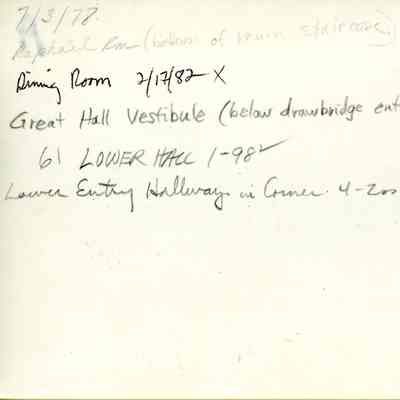 7/3/78.
Raphael Rm (bottom of main staircase)
Dining Room 2/17/82 X
Great Hall Vestibule (below drawbridge ent
61 LOWER HALL 1-98
Lower Entry Hallway in Corner. 4-200